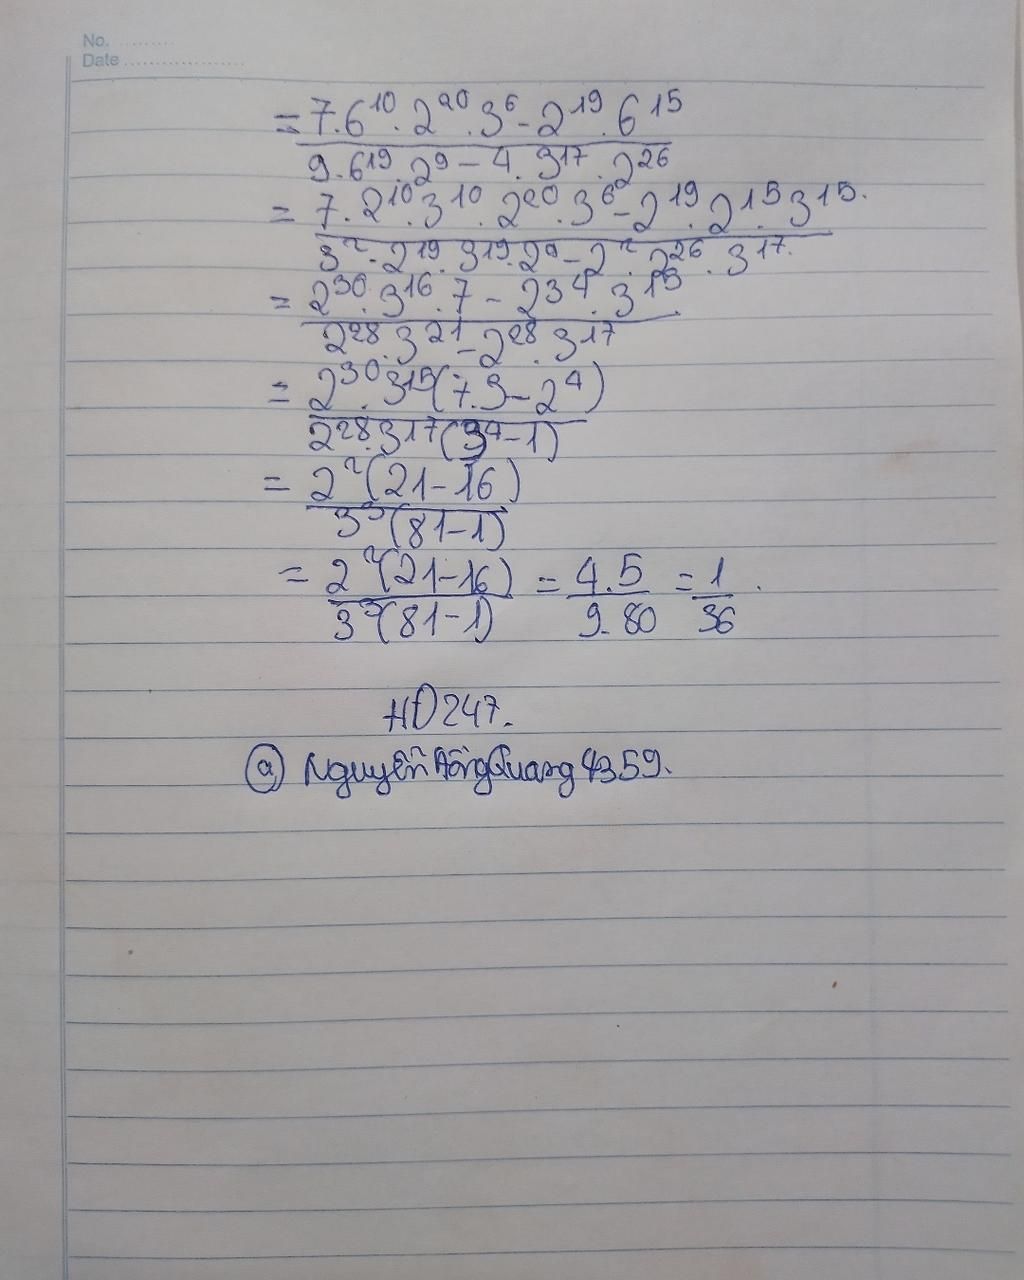 No. ..........
Date ....................
= 7.6¹⁰.2²⁰.3⁶ - 2¹⁹.6¹⁵
9.6¹⁹.2⁹ - 4.3¹⁷.2²⁶
= 7.2¹⁰.3¹⁰.2²⁰.3⁶ - 2¹⁹.2¹⁵.3¹⁵.
3².2¹⁹.3¹⁹.2⁹ - 2².2²⁶.3¹⁷.
= 2³⁰.3¹⁶.7 - 2³⁴.3¹⁵
2²⁸.3²¹ - 2²⁸.3¹⁷
= 2³⁰.3¹⁵(7.3 - 2⁴)
2²⁸.3¹⁷(3⁴-1)
= 2²(21-16)
3²(81-1)
= 2²(21-16) = 4.5 = 1.
3²(81-1) 9.80 36
HĐ247.
@ NguyễnHồngQuang4359.